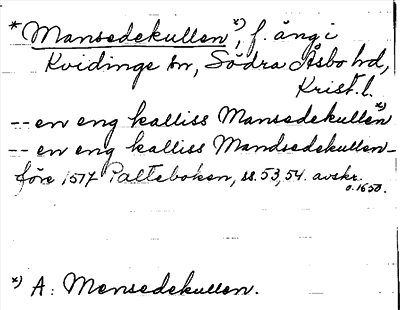 *Mansedekullen*), f. äng i
Kvidinge sn, Södra Åsbo hd,
Krist. l.
-- en eng kalliss Mansedekullen*)
-- en eng kalliss Mandsedekullen -
före 1517 Palteboken, ss. 53, 54. avskr.
o. 1650.
*) A: Mensedekullen.